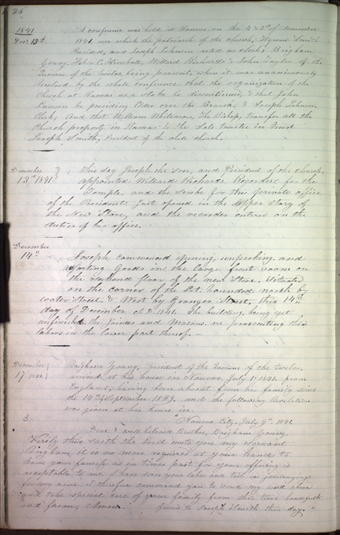 26
1841 A conference was held at Ramus on the 4 & 5th of December
Dec. 13th 1841, over which the patriarch of the church, Hyrum Smith
Presided, and Joseph Johnson acted as clerk. Brigham
Young, Heber C. Kimball, Willard Richards & John Taylor of the
Quorum of the Twelve being present, when it was unanimously
Resolved by the whole conference that the organization of the
Church at Ramus as a stake be discontinued, & that John
Lawson be presiding Elder over the Branch, & Joseph Johnson
Clerk, And that William Wightman, the Bishop, transfer all the
Church property in Ramus to the Sole Trustee in Trust
Joseph Smith, President of the whole church.
December 13th 1841. This day Joseph the Seer, and President of the church,
appointed Willard Richards Recorder for the
Temple, and the Scribe for the private office
of the President. Just opened in the upper story of
the New Store, and the recorder entered on the
duties of his office.
December
14th. Joseph commenced opening, unpacking, and
assorting Goods in the large front room on
the second floor of the new Store, situated
on the corner of the Bounded north by
water Street & West by Granger Street, this 14th
day of December A.D. 1841. The building being yet
unfinished the joiners and masons
labors in the lower part thereof.
December
17 Brigham Young, President of the Quorum of the Twelve
arrived at his house in Nauvoo, July 1st 1841 from
England, having been absent from his family since
the 14th of September 1839. and the following Revelation
was given at his house in
Nauvoo City, July 9th 1841
Dear & well beloved Brother, Brigham Young,
Verily thus saith the Lord unto you my servant
Brigham, it is no more required at your hand to
leave your family as in times past for your offering is
acceptable to me I have seen your labor and toil in journeyings
for my name. I therefore command you to send my word abroad
and take special care of your family from this time henceforth
and forever, Amen. Given to Joseph Smith this day.